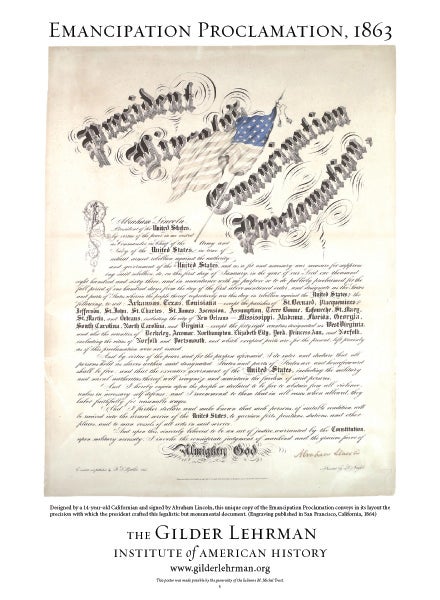 EMANCIPATION PROCLAMATION, 1863
President
Lincoln's
Emancipation
Proclamation.
I, Abraham Lincoln
President of the United States,
by virtue of the power in me vested
as Commander-in-Chief of the Army and
Navy of the United States, in time of
actual armed rebellion against the authority
and government of the United States, and as a fit and necessary war measure for suppress-
ing said rebellion, do, on this first day of January, in the year of our Lord one thousand
eight hundred and sixty three, and in accordance with my purpose so to do publicly proclaimed for the
full period of one hundred days from the day of the first above mentioned order, and designate as the States
and parts of States wherein the people thereof respectively are this day in rebellion against the United States, the
following, to wit: Arkansas, Texas, Louisiana — except the parishes of St. Bernard, Plaquemines,
Jefferson, St. John, St. Charles, St. James, Ascension, Assumption, Terre Bonne, Lafourche, St. Mary,
St. Martin, and Orleans, including the city of New Orleans — Mississippi, Alabama, Florida, Georgia,
South Carolina, North Carolina, and Virginia — except the forty-eight counties designated as West Virginia,
and also the counties of Berkeley, Accomac, Northampton, Elizabeth City, York, Princess Ann, and Norfolk,
including the cities of Norfolk and Portsmouth, and which excepted parts are, for the present, left precisely
as if this proclamation were not issued.
And by virtue of the power and for the purpose aforesaid, I do order and declare that all
persons held as slaves within said designated States and parts of States are and henceforward
shall be free, and that the executive government of the United States, including the military
and naval authorities thereof will recognize and maintain the freedom of said persons.
And I hereby enjoin upon the people so declared to be free to abstain from all violence
unless in necessary self defense, and I recommend to them that in all cases when allowed, they
labor faithfully for reasonable wages.
And I further declare and make known that such persons of suitable condition will
be received into the armed service of the United States, to garrison forts, positions, stations, and other
places, and to man vessels of all sorts in said service.
And upon this, sincerely believed to be an act of justice, warranted by the Constitution,
upon military necessity, I invoke the considerate judgment of mankind and the gracious favor of
Almighty God
Abraham Lincoln
Designed by a 14-year-old Californian and signed by Abraham Lincoln, this unique copy of the Emancipation Proclamation conveys in its layout the
precision with which the president crafted this legalistic but monumental document. (Engraving published in San Francisco, California, 1864)
THE GILDER LEHRMAN
INSTITUTE of AMERICAN HISTORY
www.gilderlehrman.org
This poster was made possible by the generosity of the Julienne M. Michel Trust.